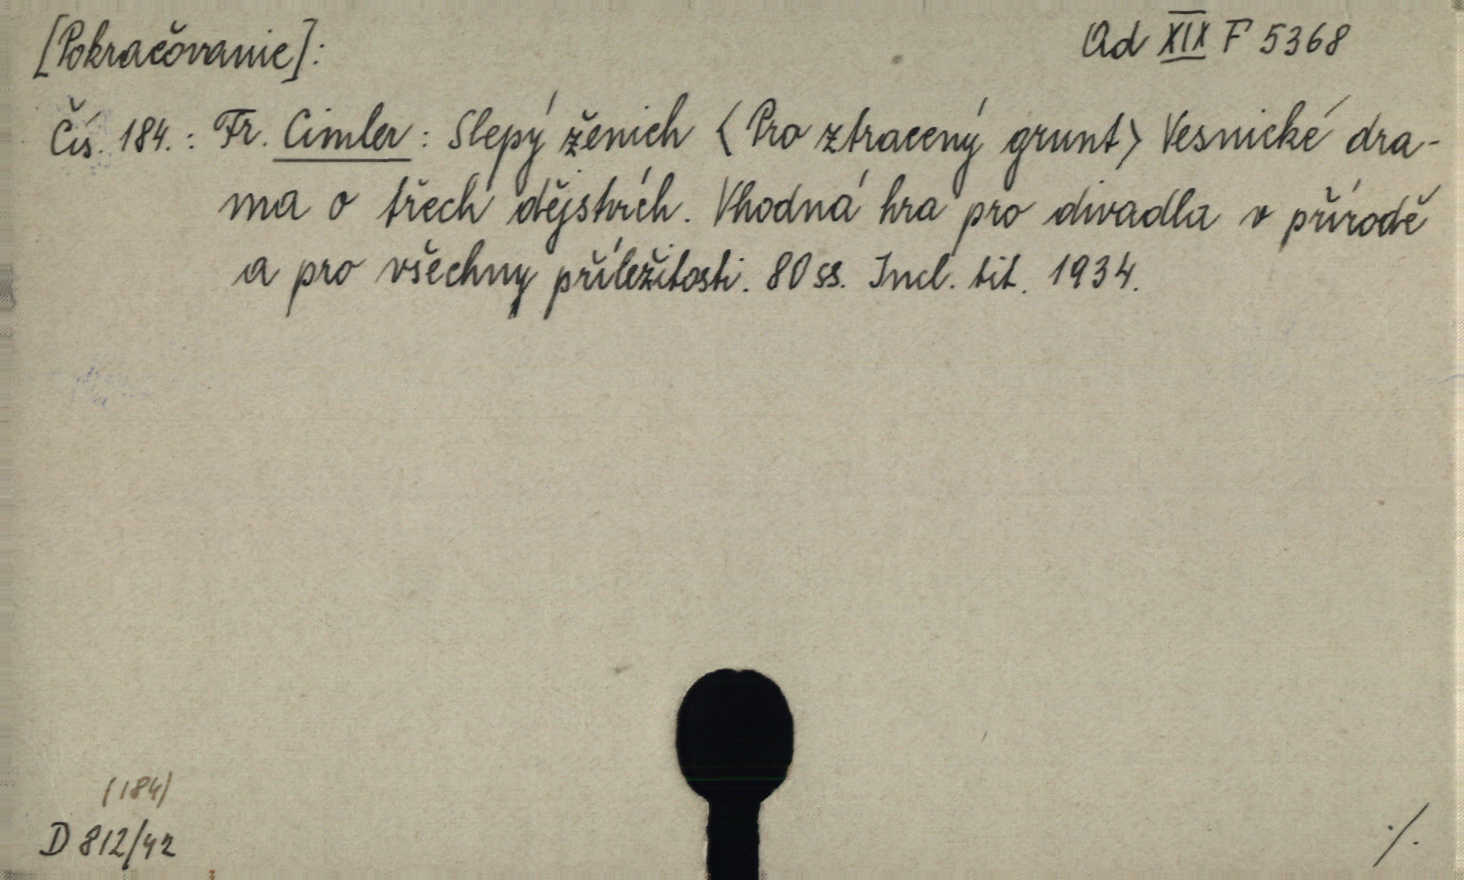 [Pokračovanie]:
Ad XIX F 5368
Čís. 184. : Fr. Cimler : Slepý ženich <Pro ztracený grunt> Vesnické dra-
ma o třech dějstvích. Vhodná hra pro divadla v přírodě
a pro všechny příležitosti. 80 ss. Incl. tit. 1934.
(184)
D 812/42
./.